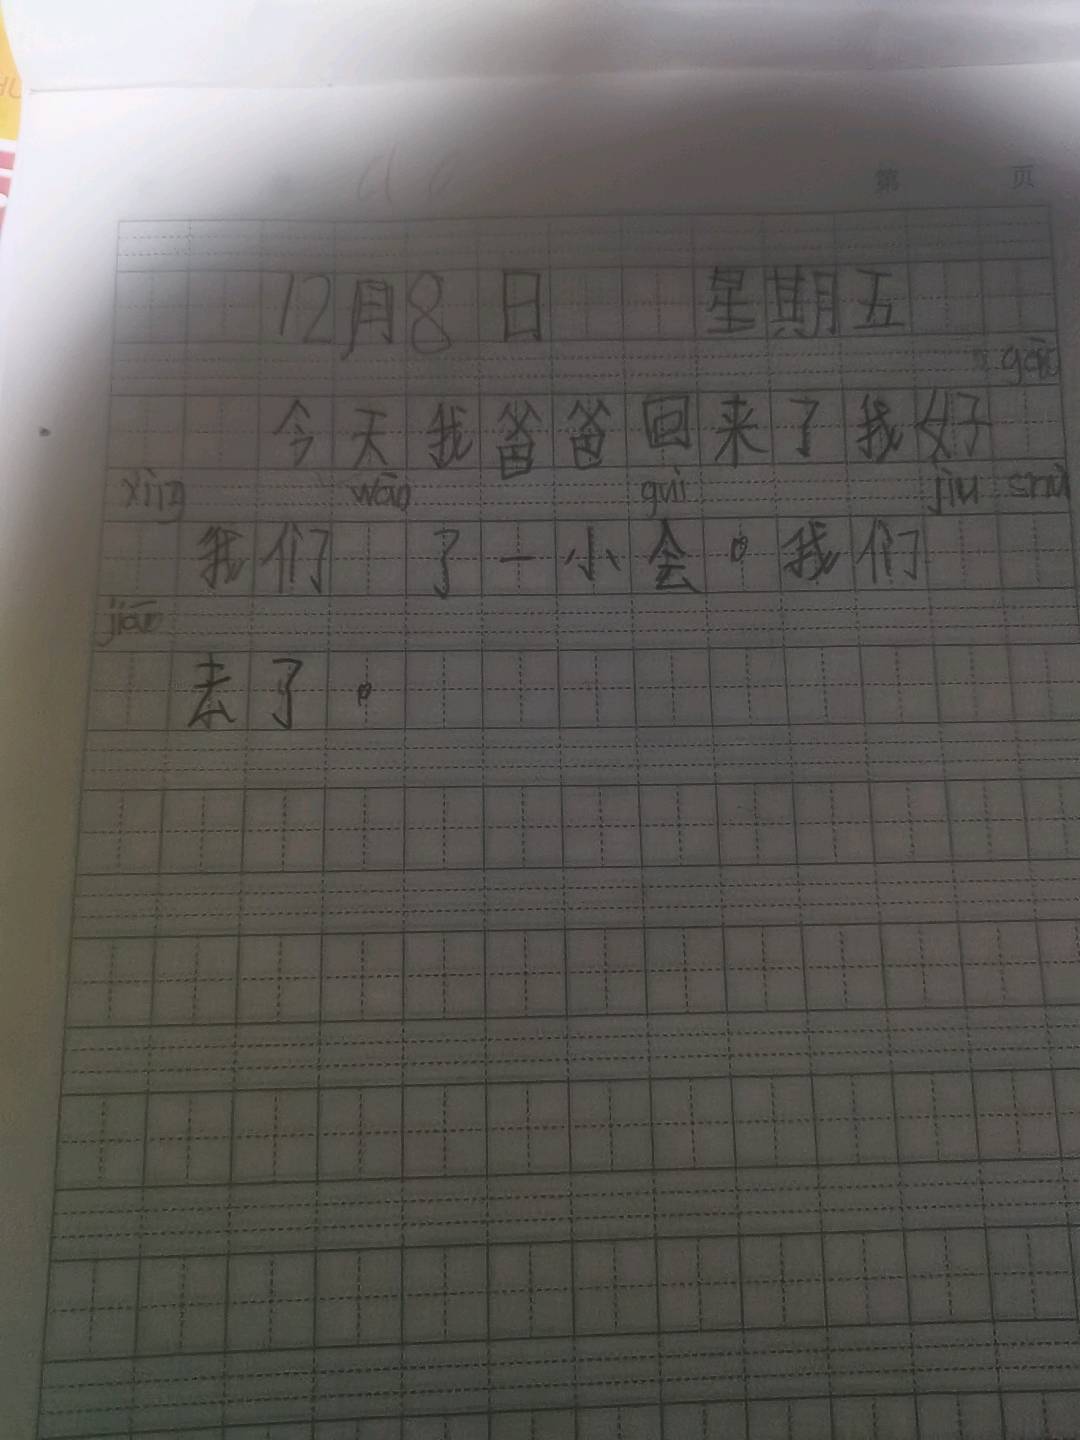 第 页
12月8日 星期五
gāo
今天我爸爸回来了我好
xìng wán guì jiù shuì
我们 了一小会。我们
jiāo
去了。